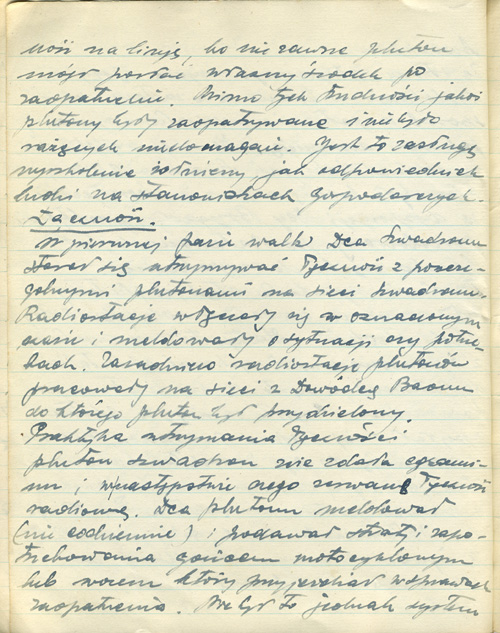 wóźi na linję, bo nie zawsze pluton
mógł posłać własny środek po
zaopatrzenie. Mimo tych trudności jakoś
plutony były zaopatrywane i nie było
rażących niedomagań. Jest to zasługą
wyszkolenia żołnierzy, jak odpowiednich
ludzi na stanowiskach gospodarczych.
Łączność.
W pierwszej fazie walk Dca Szwadronu
starał się utrzymywać łączność z poszcze-
gólnymi plutonami na sieci szwadronu.
Radiostacje włączały się w oznaczonym
czasie i meldowały o sytuacji czy potrze-
bach. Zasadniczo radiostacje plutonów
pracowały na sieci z Dowódcą Baonu
do którego pluton był przydzielony.
Praktyka utrzymania łączności
pluton szwadron nie zdała egzami-
nu i w następstwie czego zerwano łączność
radiową. Dca plutonu meldował
(nie codziennie) i podawał straty i zapo-
trzebowania gońcem motocyklowym
lub wozem który przyjeżdżał w sprawach
zaopatrzenia. Nie był to jednak system